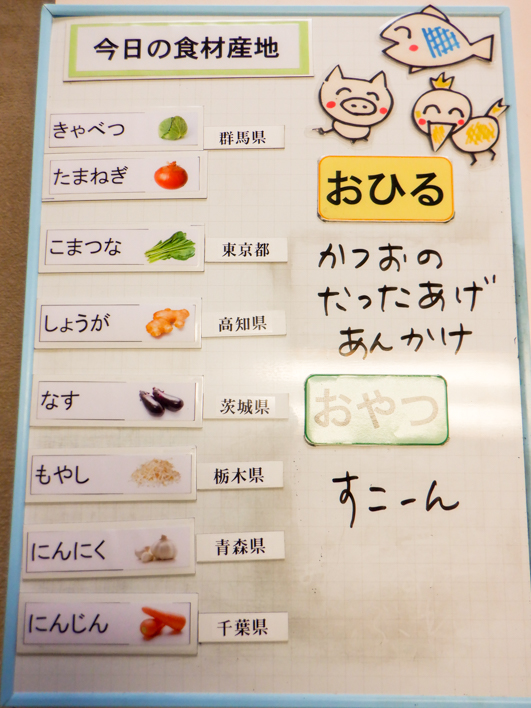 今日の食材産地
きゃべつ 群馬県
たまねぎ
こまつな 東京都
しょうが 高知県
なす 茨城県
もやし 栃木県
にんにく 青森県
にんじん 千葉県
おひる
かつおの
たったあげ
あんかけ
おやつ
すこーん